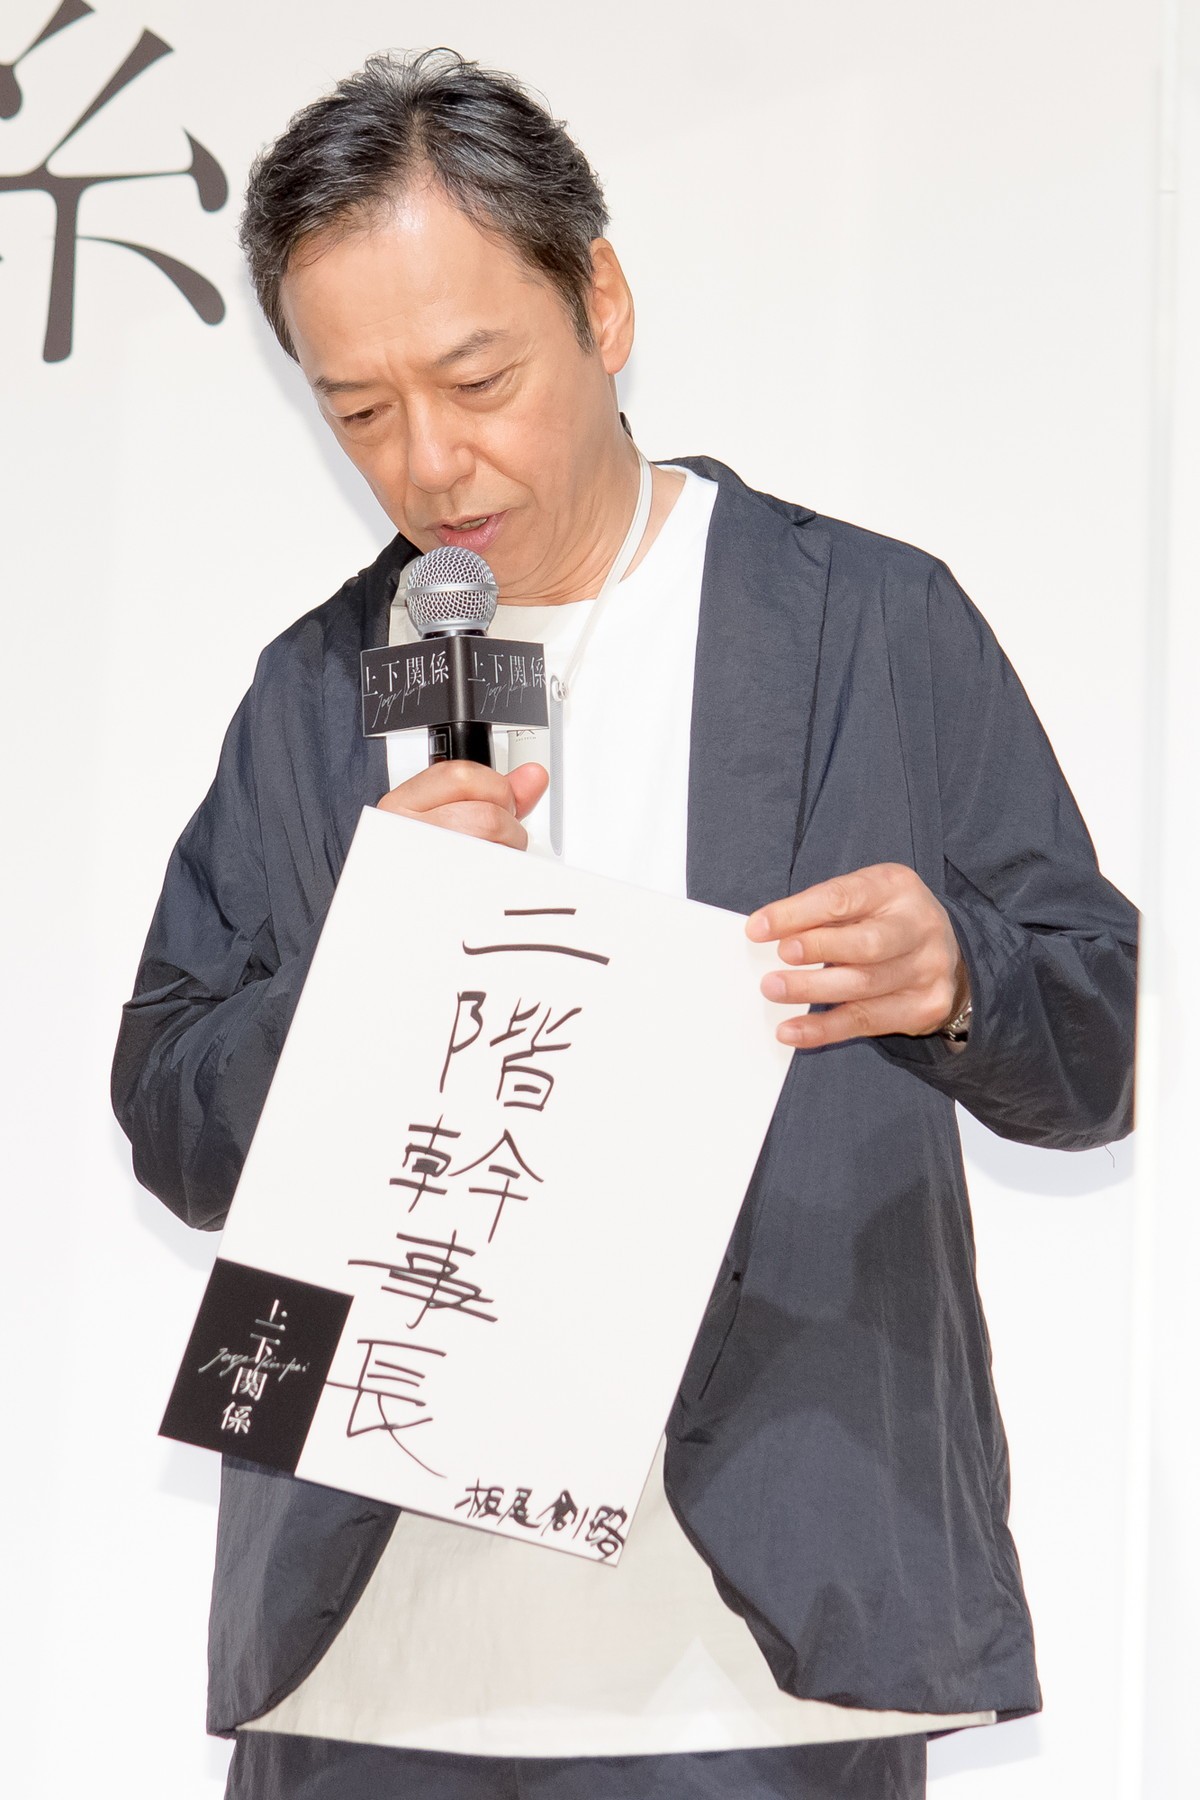 係
上下関係
Joge kankei
上下関係
二階幹事長
上下関係
板尾創路